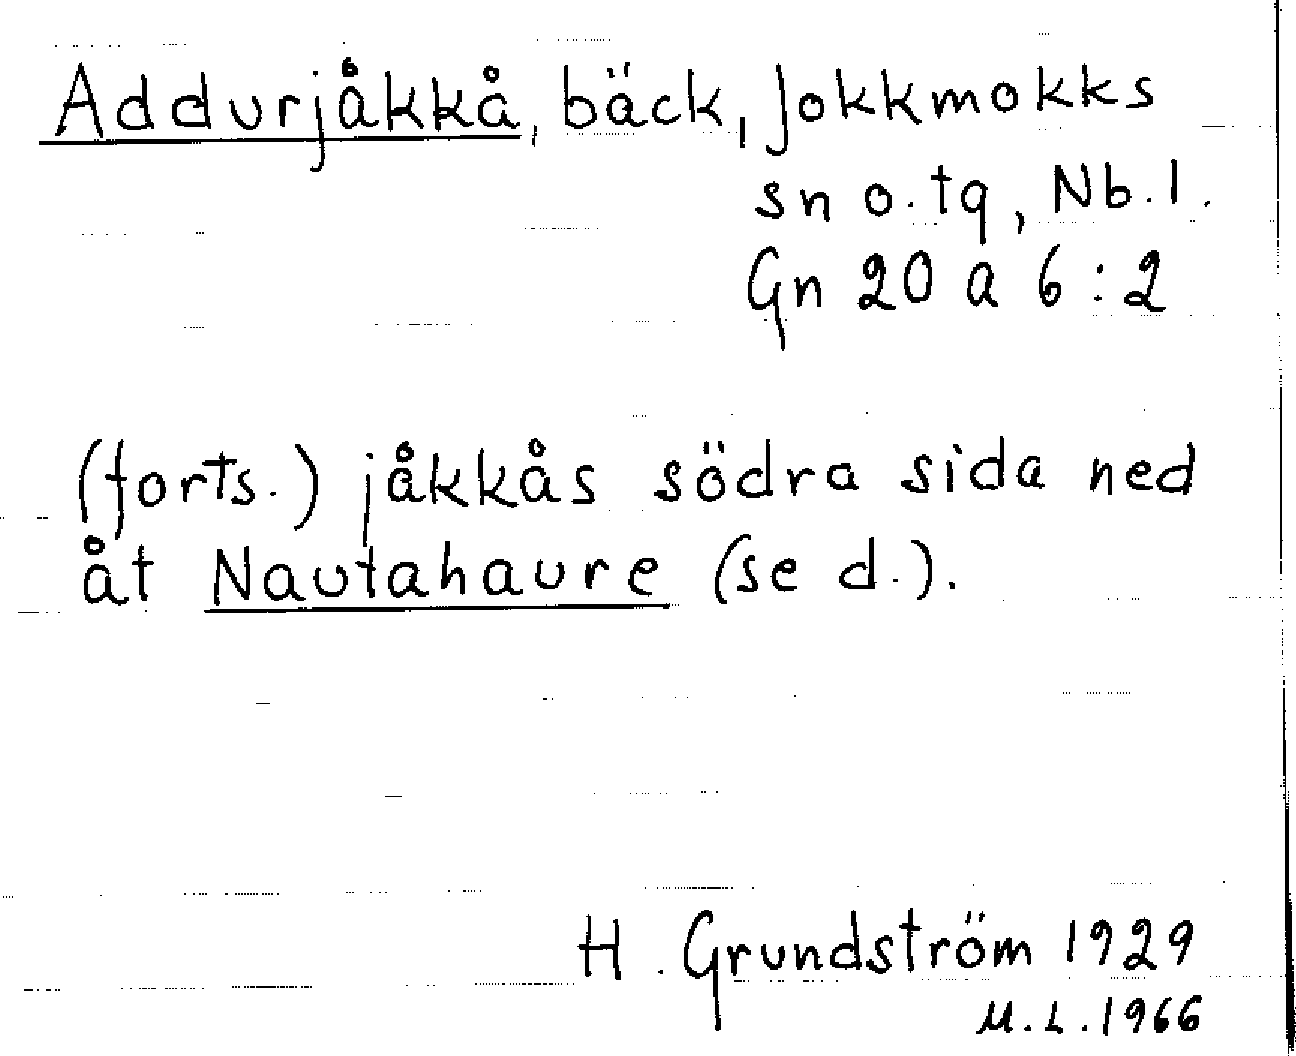 Addurjåkkå, bäck, Jokkmokks
sn o. tg, Nb. l.
Gn 20 a 6:2
(forts.) jåkkås södra sida ned
åt Nautahaure (se d.).
H. Grundström 1929
M.L. 1966